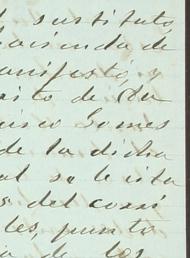 sustituto
hacienda de
manifestó, y
de
Gomes
de la dicha
al se le cita
del comi
punto
de los